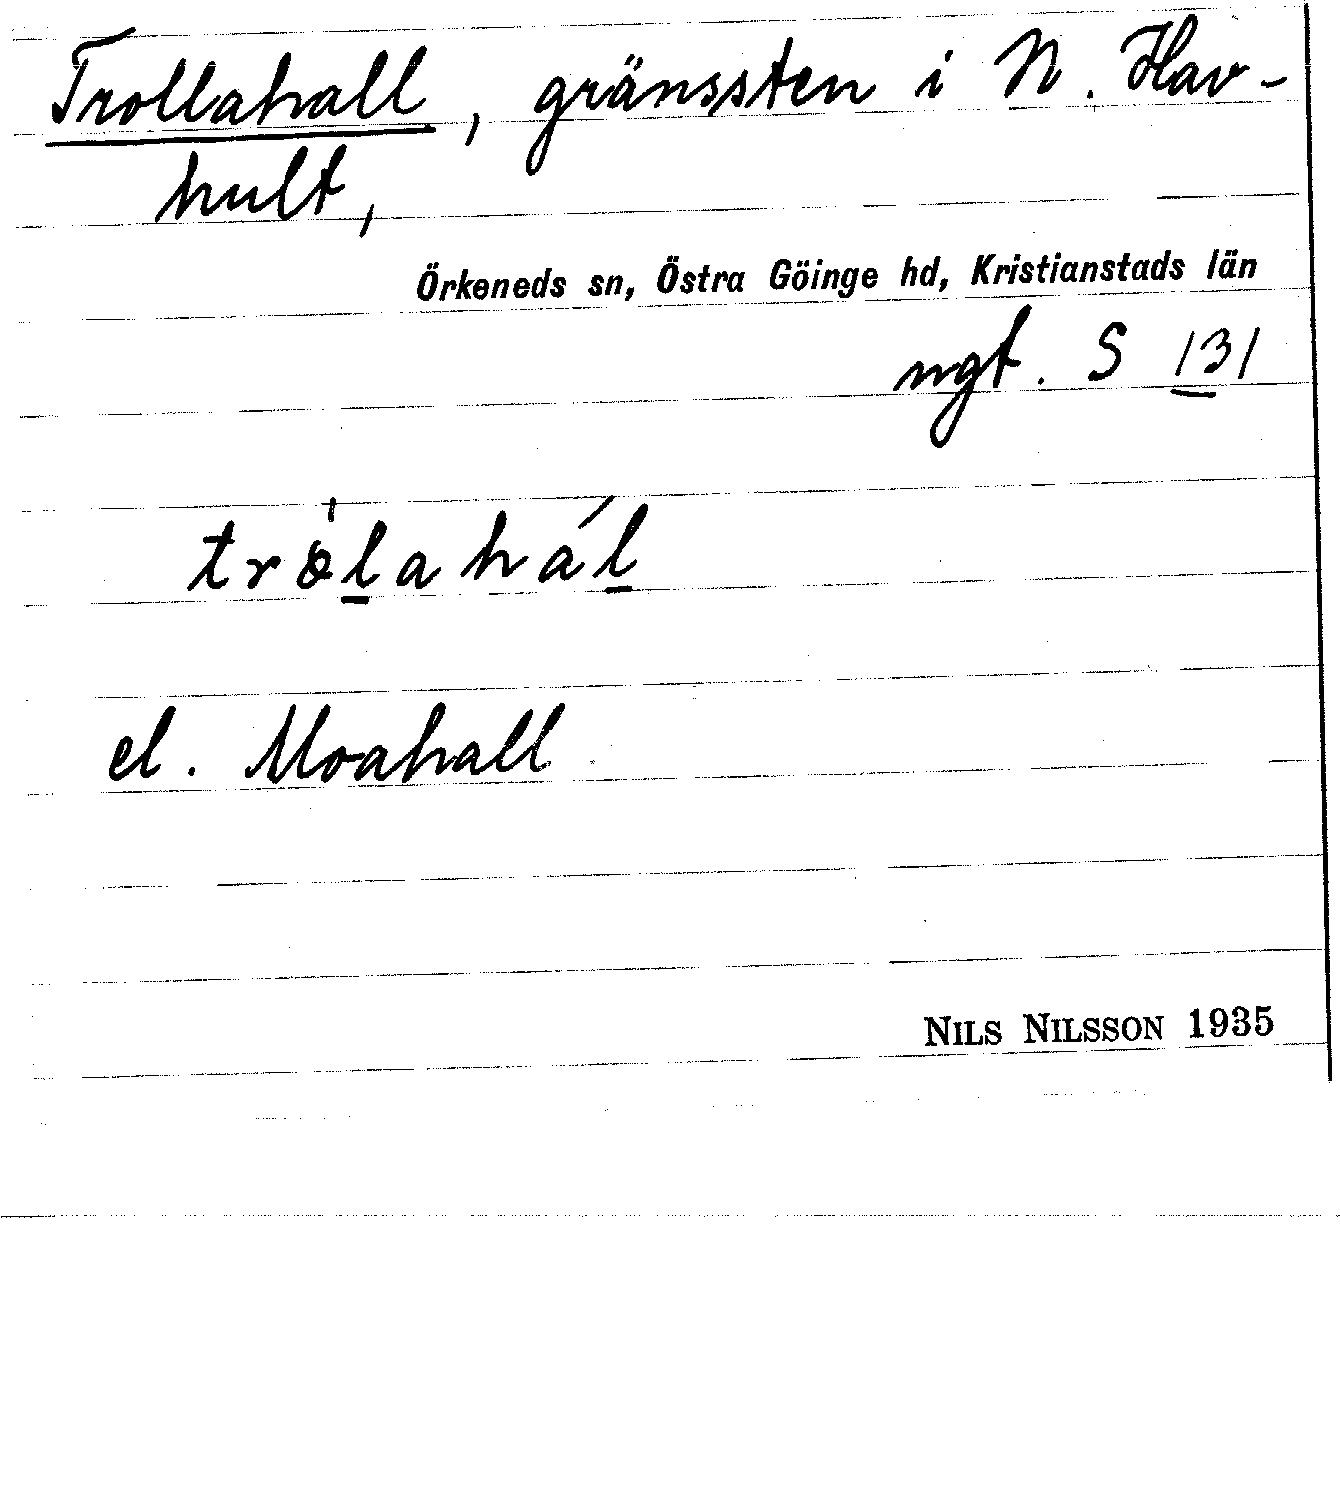 Trollahall, gränssten i N. Hav-
hult,
Örkeneds sn, Östra Göinge hd, Kristianstads län
ngt. S 131
trò̵l̲ahál̲
el. Moahall
NILS NILSSON 1935